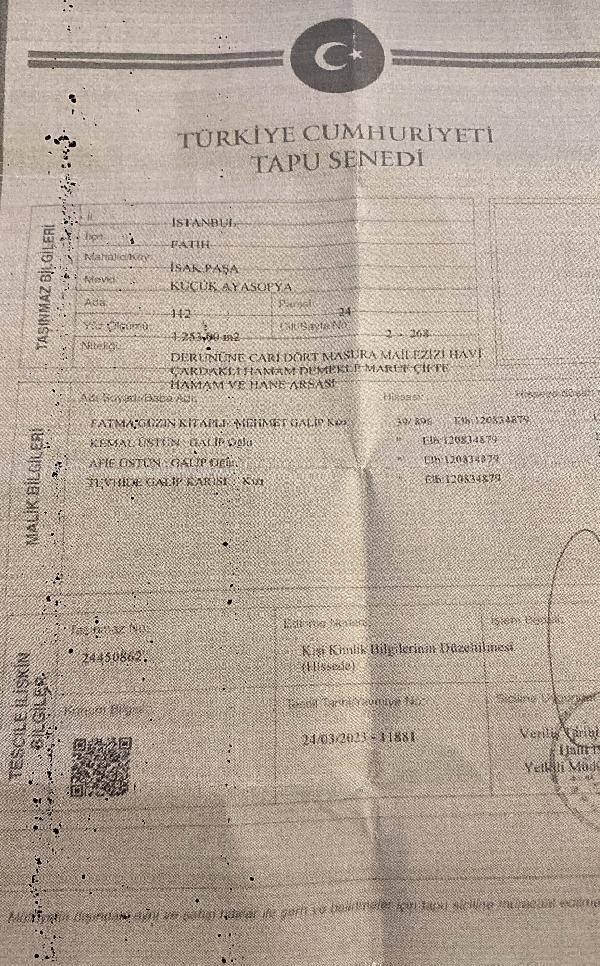 TÜRKİYE CUMHURİYETİ
TAPU SENEDİ
TAŞINMAZ BİLGİLERİ
İl İSTANBUL
İlçe FATİH
Mahalle/Köy İSAK PAŞA
Mevki KÜÇÜK AYASOFYA
Ada 112 Parsel 24
Yüz Ölçümü 1.253,00 m2 Cilt/Sayfa No 2 - 268
Niteliği DERUNUNE CARİ DÖRT MASURA MAİLEZİZİ HAVİ
ÇARDAKLI HAMAM DEMEKLE MARUF ÇİFTE
HAMAM VE HANE ARSASI
MALİK BİLGİLERİ
Adı Soyadı/Baba Adı Hissesi
FATMA GÜZİN KİTAPLI : MEHMET GALİP Kızı 39/ 896 Elb:120834879
KEMAL ÜSTÜN : GALİP Oğlu " Elb:120834879
AFİF ÜSTÜN : GALİP Oğlu " Elb:120834879
TEVHİDE GALİP KARISI : Kızı " Elb:120834879
TESCİLE İLİŞKİN BİLGİLER
Taşınmaz No: Edinme Nedeni: İşlem Bedeli:
24450862 Kişi Kimlik Bilgilerinin Düzeltilmesi
(Hissede)
Konum Bilgisi Tescil Tarihi/Yevmiye No: Siciline Uygundur
24/03/2023 - 11881 Veriliş Tarihi
Halil
Yetkili Müdü
dışındaki ayni ve şahsi haklar ile şerh ve belirtmeler için tapu siciline müracaat edilme